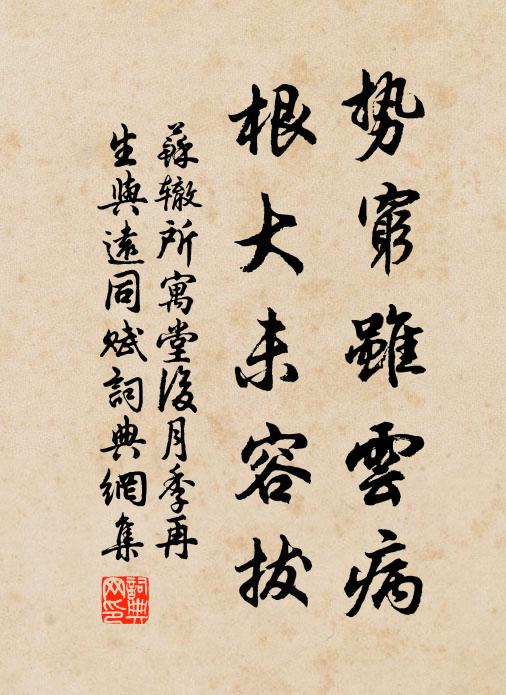 势窮雖雲病
根大未容拔
蘇辙所寓堂後月季再
生與遠同赋詞典網集
詞典
网印